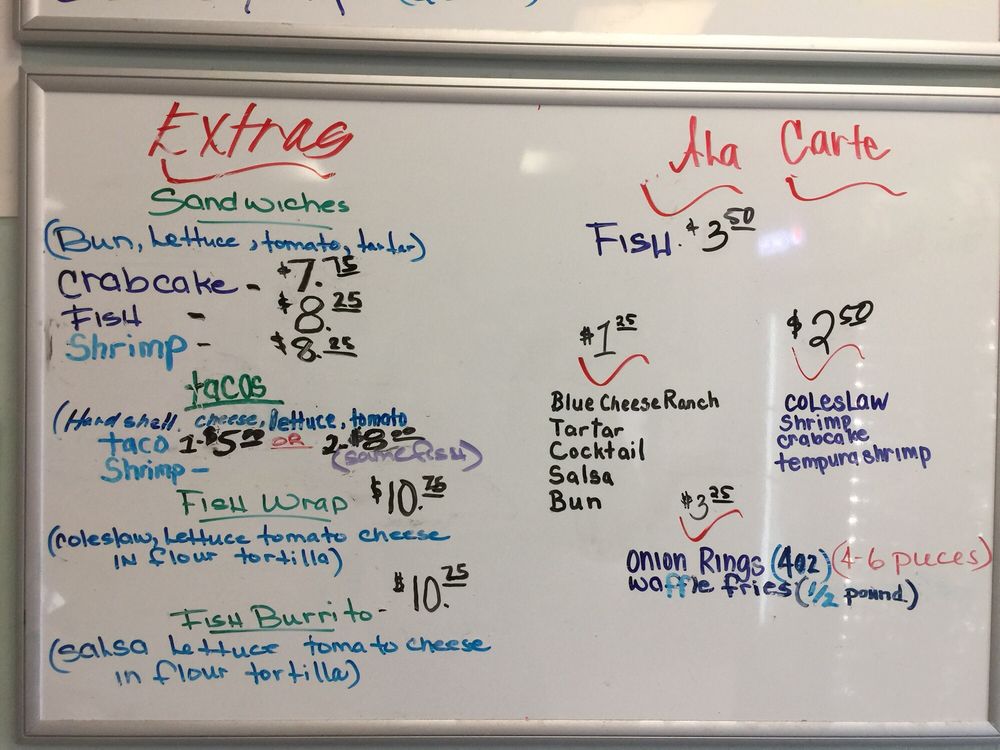 Extras
Sandwiches
(Bun, Lettuce, tomato, tartar)
Crabcake - $7.75
FISH - $8.25
Shrimp - $8.25
tacos
(Hardshell, cheese, lettuce, tomato
taco 1-$5.00 OR 2-$8.00
(same fish)
Shrimp -
FisH Wrap $10.75
(coleslaw, Lettuce tomato cheese
IN flour tortilla)
Fish Burrito - $10.25
(salsa Lettuce tomato cheese
in flour tortilla)
Ala Carte
FISH. $3.50
$1.25
Blue Cheese Ranch
Tartar
Cocktail
Salsa
Bun
$2.50
COLESLAW
Shrimp
crabcake
tempura shrimp
$3.25
ONION RINGS (4oz) (4-6 pieces)
waffle fries (1/2 pound)